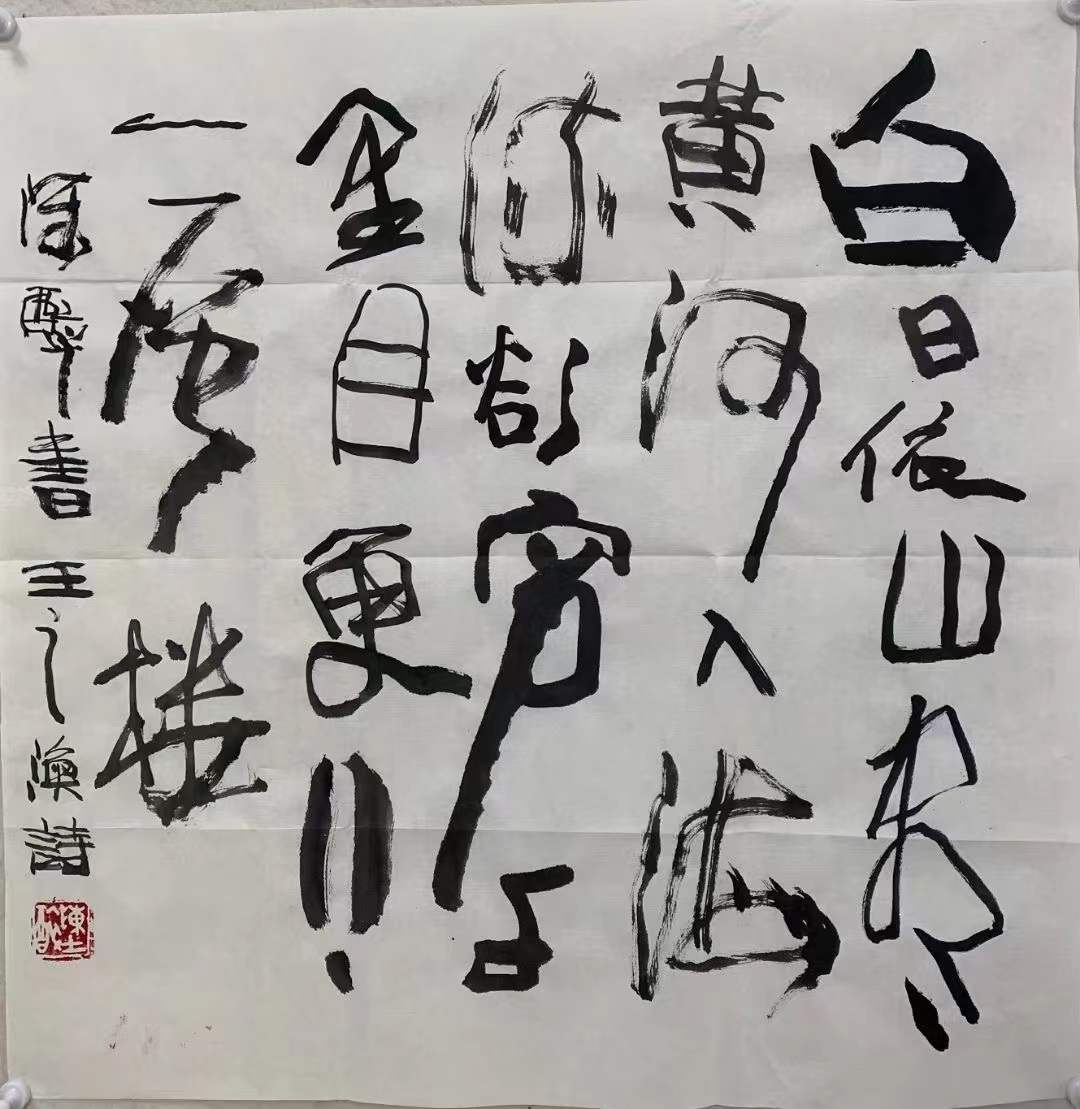 白日依山尽
黄河入海
流欲穷千
里目更上
一层楼
陈醉書王之涣詩